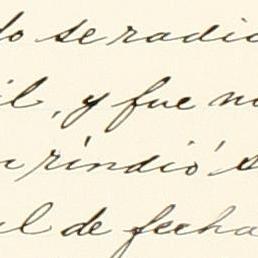 do se radic
il, y fue no
n rindió s
al de fecha